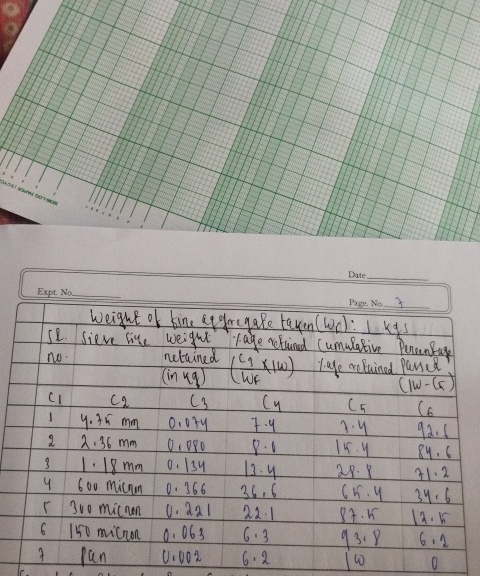 SEMI-LOG PAPER
Date
Expt. No.
Page. No. 7
Weight of fine aggregate taken (Wf): 1 kgs
Sl. Sieve size weight %age retained Cumulative Percentage
no. retained (C3 x 100) %age retained Passed
(in kg) Wf (100-C5)
C1 C2 C3 C4 C5 C6
1 4.75 mm 0.074 7.4 7.4 92.6
2 2.36 mm 0.080 8.0 15.4 84.6
3 1.18 mm 0.134 13.4 28.8 71.2
4 600 micron 0.366 36.6 65.4 34.6
5 300 micron 0.221 22.1 87.5 12.5
6 150 micron 0.063 6.3 93.8 6.2
7 Pan 0.002 6.2 100 0